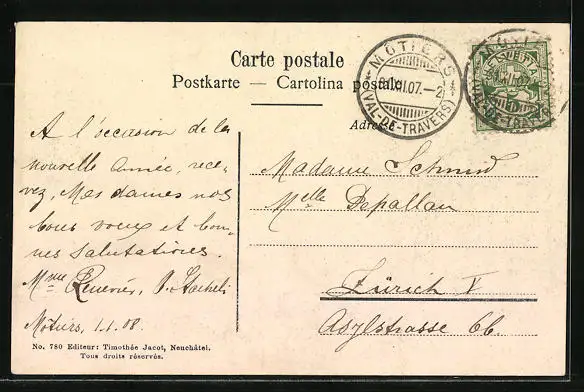 Carte postale
Postkarte — Cartolina postale
MÔTIERS
31.XII.07.–2
(VAL-DE-TRAVERS)
HELVETIA
Adresse
A l'occasion de la
nouvelle année, rece-
vez, Mesdames nos
bons vœux et bon-
nes salutations.
Mme
Môtiers, 1.1.08.
Madame Schmid
Melle Depallan
Zürich V
Asylstrasse 66.
No. 780 Editeur: Timothée Jacot, Neuchâtel.
Tous droits réservés.